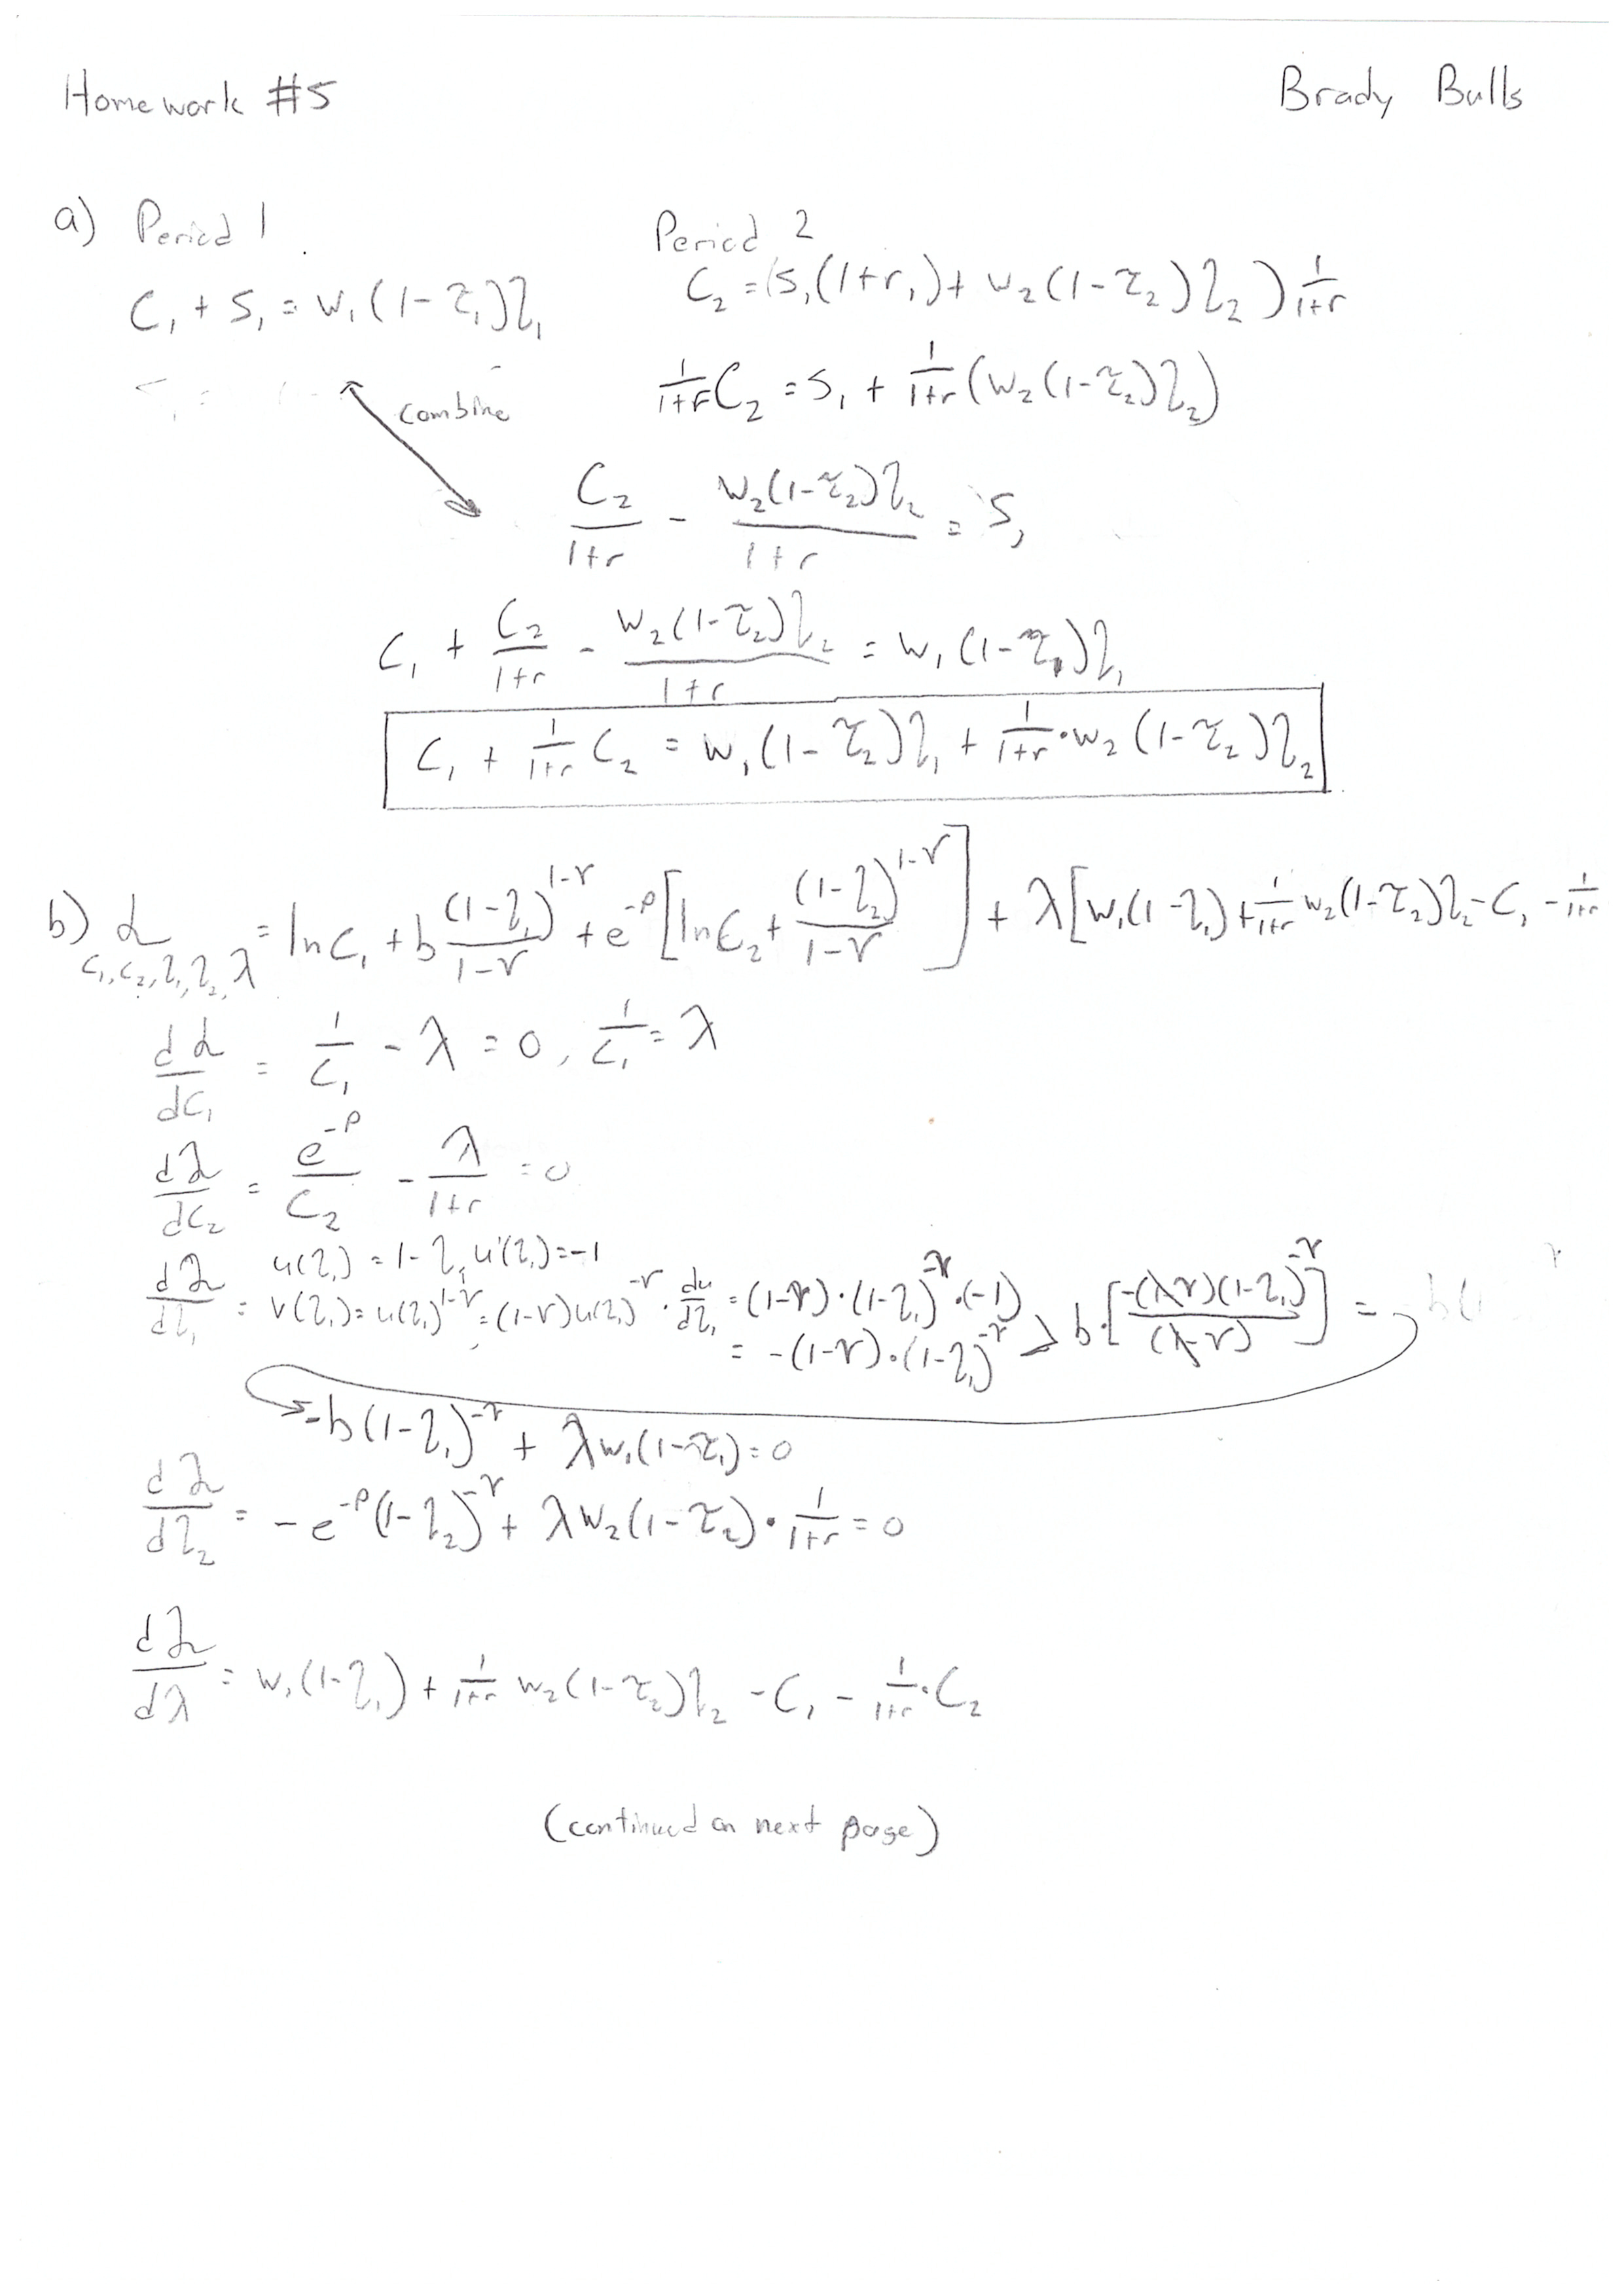 Homework #5 Brady Bulls
a) Period 1 Period 2
C₁ + S₁ = w₁(1-τ₁)l₁ C₂ = (S₁(1+r₁) + w₂(1-τ₂)l₂) 1/(1+r)
1/(1+r) C₂ = S₁ + 1/(1+r) (w₂(1-τ₂)l₂)
combine
C₂/(1+r) - w₂(1-τ₂)l₂/(1+r) = S₁
C₁ + C₂/(1+r) - w₂(1-τ₂)l₂/(1+r) = w₁(1-τ₁)l₁
C₁ + 1/(1+r) C₂ = w₁(1-τ₂)l₁ + 1/(1+r) · w₂(1-τ₂)l₂
b) ℒ = ln C₁ + b (1-l₁)^(1-γ)/(1-γ) + e^(-ρ) [ln C₂ + (1-l₂)^(1-γ)/(1-γ)] + λ[w₁(1-l₁) + 1/(1+r) w₂(1-τ₂)l₂ - C₁ - 1/(1+r)
C₁, C₂, l₁, l₂, λ
dℒ/dC₁ = 1/C₁ - λ = 0, 1/C₁ = λ
dℒ/dC₂ = e^(-ρ)/C₂ - λ/(1+r) = 0
u(l₁) = 1-l₁, u'(l₁) = -1
dℒ/dl₁ = v(l₁) = u(l₁)^(1-γ) = (1-γ)u(l₁)^(-γ) · du/dl₁ = (1-γ)·(1-l₁)^(-γ)·(-1)
= -(1-γ)·(1-l₁)^(-γ) > b·[-(1-γ)(1-l₁)^(-γ)/(1-γ)] =
-b(1-l₁)^(-γ) + λw₁(1-τ₁) = 0
dℒ/dl₂ = -e^(-ρ)(1-l₂)^(-γ) + λw₂(1-τ₂) · 1/(1+r) = 0
dℒ/dλ = w₁(1-l₁) + 1/(1+r) w₂(1-τ₂)l₂ - C₁ - 1/(1+r) · C₂
(continued on next page)